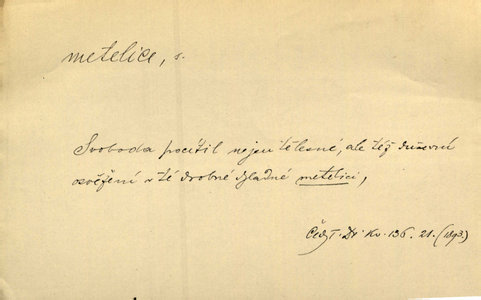 metelice, s.
Svoboda pocítil nejen tělesné, ale též duševní
osvěžení v té drobné chladné metelici,
Kv. 136. 21. (1893)